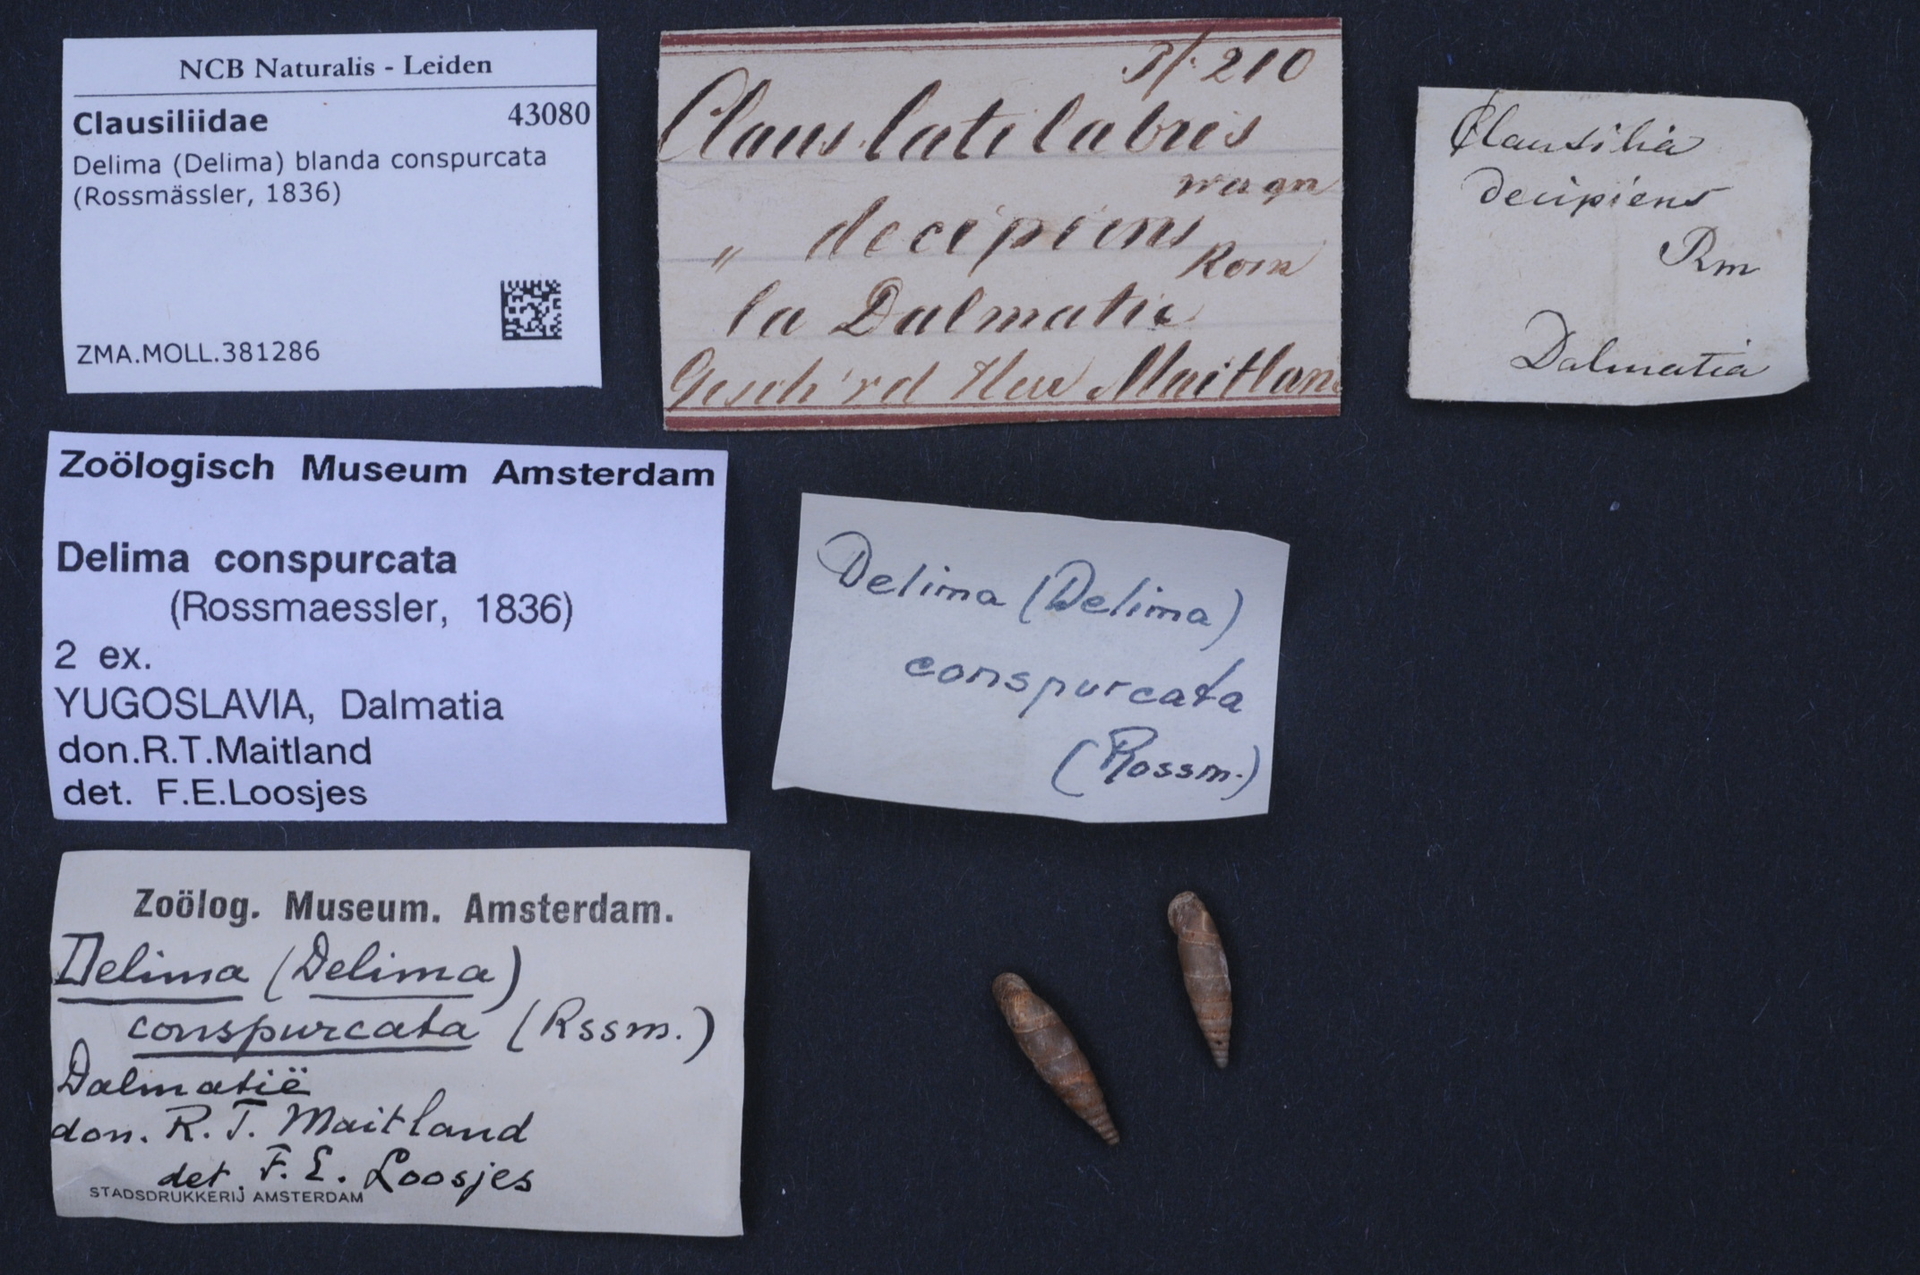 NCB Naturalis - Leiden
Clausiliidae 43080
Delima (Delima) blanda conspurcata
(Rossmässler, 1836)
ZMA.MOLL.381286
Pf. 210
Claus latilabris
wagn
" decipiens
Rom
la Dalmatie
Gesch'r d Heer Maitland
Clausilia
decipiens
Rm
Dalmatia
Zoölogisch Museum Amsterdam
Delima conspurcata
(Rossmaessler, 1836)
2 ex.
YUGOSLAVIA, Dalmatia
don.R.T.Maitland
det. F.E.Loosjes
Delima (Delima)
conspurcata
(Rossm.)
Zoölog. Museum. Amsterdam.
Delima (Delima)
conspurcata (Rssm.)
Dalmatië
don. R. T. Maitland
det. F. E. Loosjes
STADSDRUKKERIJ AMSTERDAM